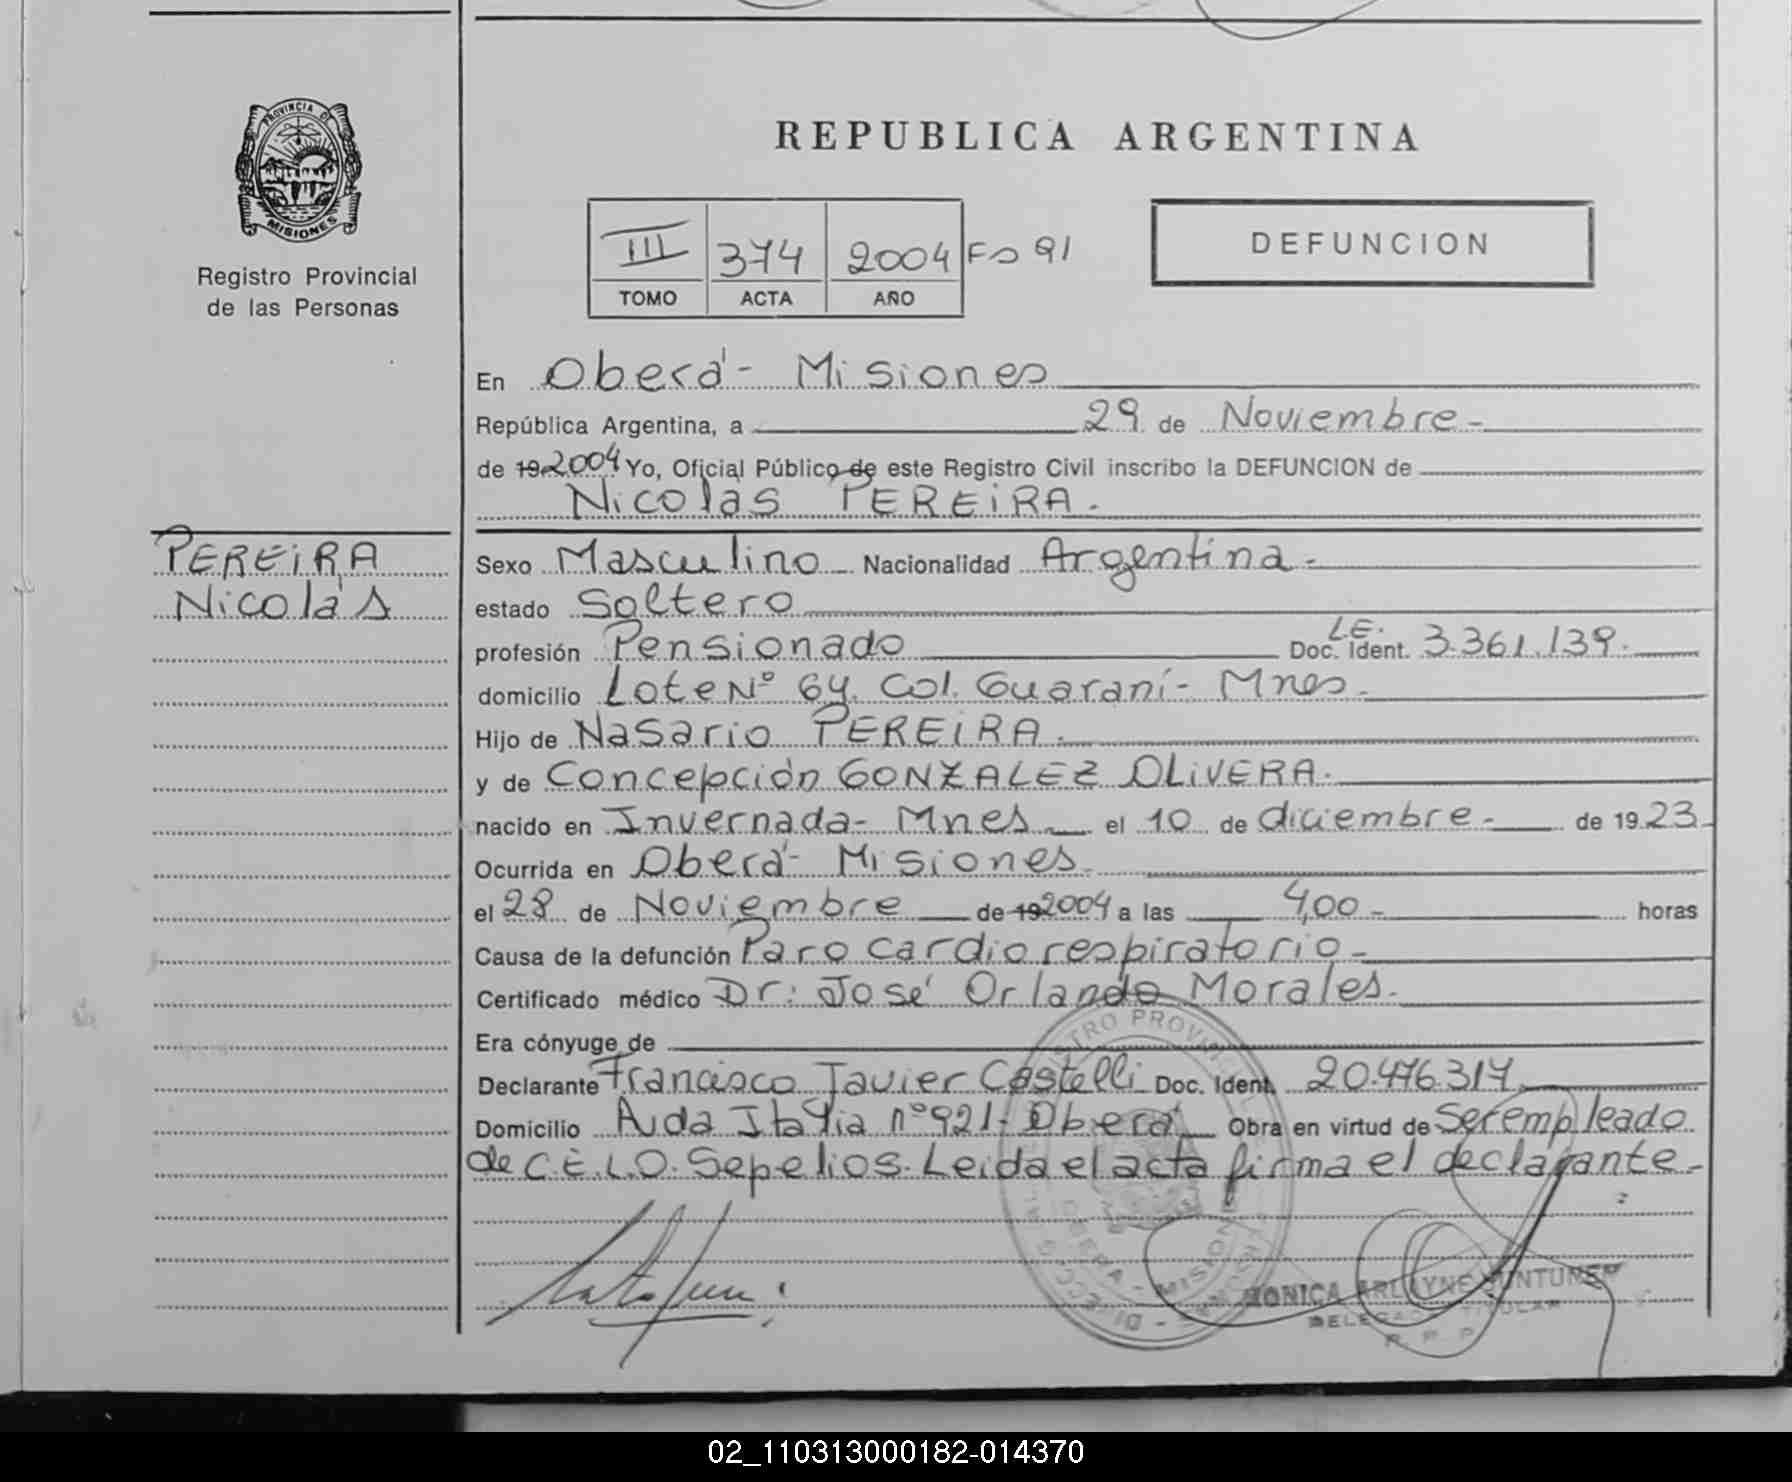 PROVINCIA DE
MISIONES
Registro Provincial
de las Personas
REPUBLICA ARGENTINA
III 374 2004 Fo 91
TOMO ACTA AÑO
DEFUNCION
En Oberá - Misiones
República Argentina, a 29 de Noviembre -
de 19 2004 Yo, Oficial Público de este Registro Civil inscribo la DEFUNCION de
Nicolas PEREIRA.
PEREIRA
Nicolás
Sexo Masculino Nacionalidad Argentina -
estado Soltero
profesión Pensionado Doc. Ident. L.E. 3.361.139.
domicilio Lote Nº 64. Col. Guaraní - Mnes.
Hijo de Nasario PEREIRA.
y de Concepción GONZALEZ OLIVERA.
nacido en Invernada - Mnes el 10 de diciembre - de 19 23
Ocurrida en Oberá - Misiones.
el 28 de Noviembre de 19 2004 a las 4,00 - horas
Causa de la defunción Paro cardiorespiratorio -
Certificado médico Dr: José Orlando Morales.
Era cónyuge de
Declarante Francisco Javier Castelli Doc. Ident. 20.476.314
Domicilio Avda Italia nº 921 - Oberá Obra en virtud de Ser empleado
de C.E.L.O. Sepelios. Leida el acta firma el declarante -
OBERA - MISIONES
MONICA
R. P. P.
02_110313000182-014370